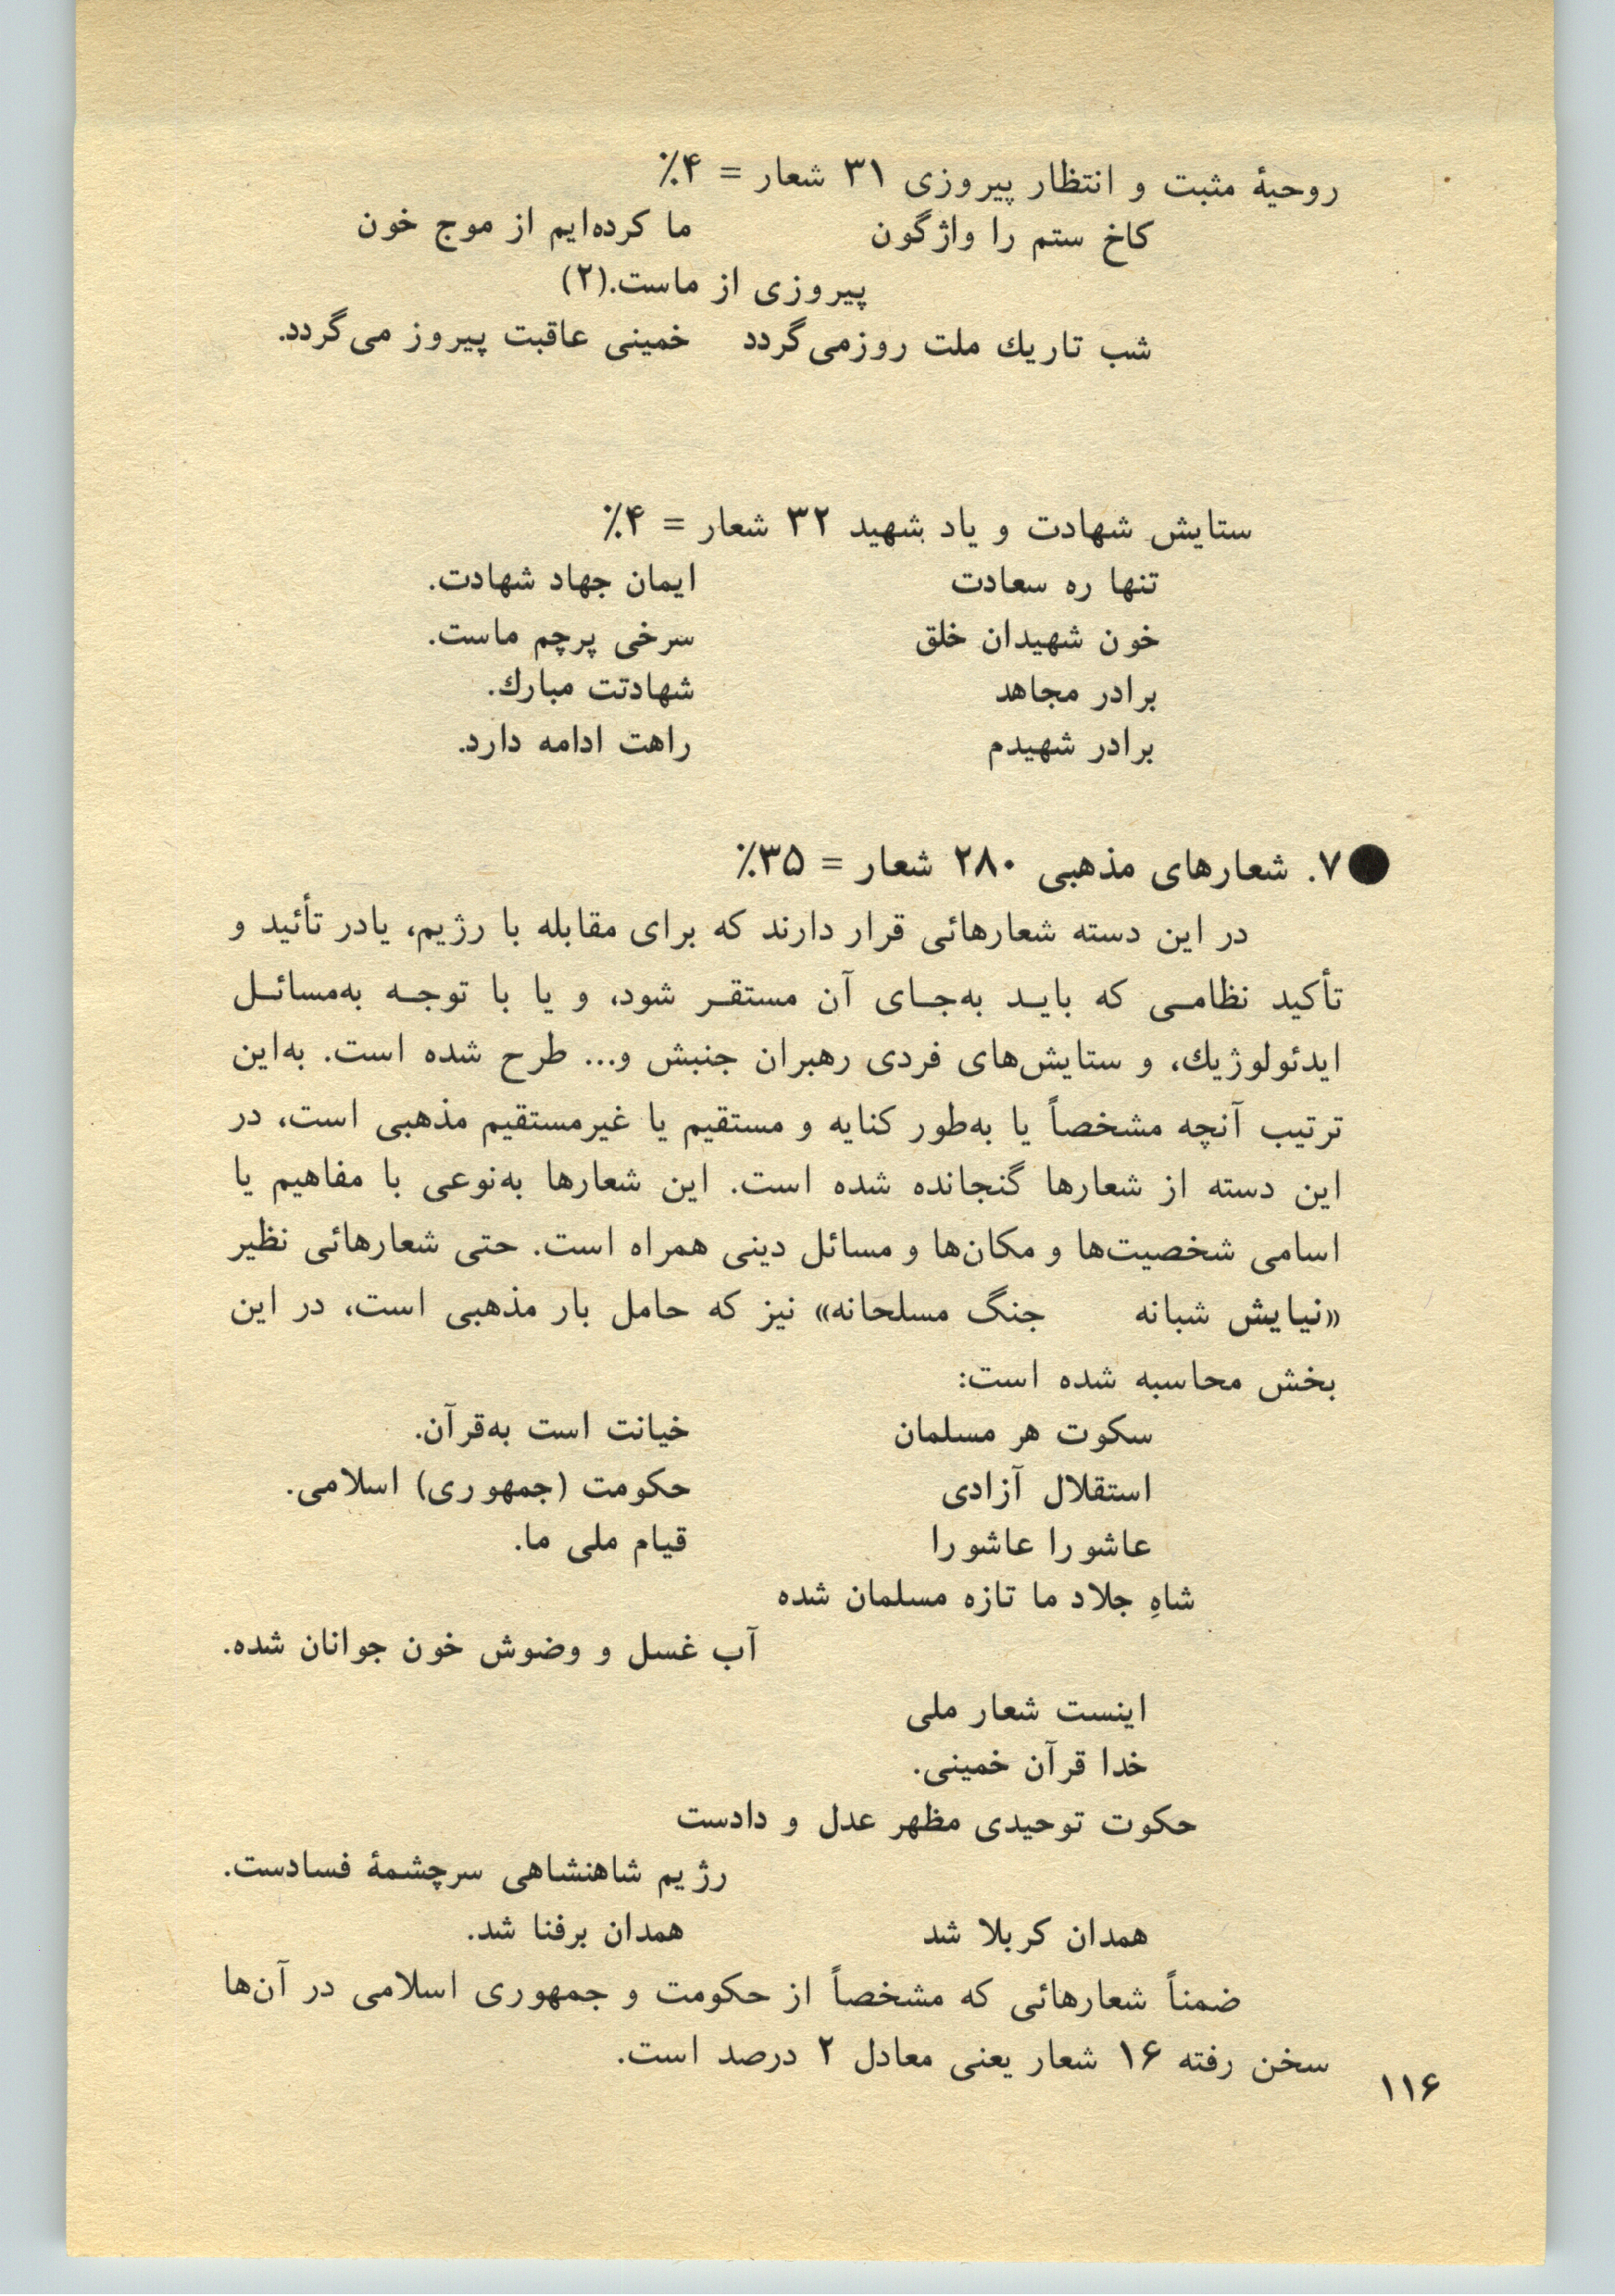 روحیهٔ مثبت و انتظار پیروزی ۳۱ شعار = ۴٪
کاخ ستم را واژگون ما کرده‌ایم از موج خون
پیروزی از ماست.(۲)
شب تاریك ملت روزمی‌گردد خمینی عاقبت پیروز می‌گردد.
ستایش شهادت و یاد شهید ۳۲ شعار = ۴٪
تنها ره سعادت ایمان جهاد شهادت.
خون شهیدان خلق سرخی پرچم ماست.
برادر مجاهد شهادتت مبارك.
برادر شهیدم راهت ادامه دارد.
●۷. شعارهای مذهبی ۲۸۰ شعار = ۳۵٪
در این دسته شعارهائی قرار دارند که برای مقابله با رژیم، یادر تأئید و
تأکید نظامی که باید به‌جای آن مستقر شود، و یا با توجه به‌مسائل
ایدئولوژیك، و ستایش‌های فردی رهبران جنبش و... طرح شده است. به‌این
ترتیب آنچه مشخصاً یا به‌طور کنایه و مستقیم یا غیرمستقیم مذهبی است، در
این دسته از شعارها گنجانده شده است. این شعارها به‌نوعی با مفاهیم یا
اسامی شخصیت‌ها و مکان‌ها و مسائل دینی همراه است. حتی شعارهائی نظیر
«نیایش شبانه جنگ مسلحانه» نیز که حامل بار مذهبی است، در این
بخش محاسبه شده است:
سکوت هر مسلمان خیانت است به‌قرآن.
استقلال آزادی حکومت (جمهوری) اسلامی.
عاشورا عاشورا قیام ملی ما.
شاهِ جلاد ما تازه مسلمان شده
آب غسل و وضوش خون جوانان شده.
اینست شعار ملی
خدا قرآن خمینی.
حکوت توحیدی مظهر عدل و دادست
رژیم شاهنشاهی سرچشمهٔ فسادست.
همدان کربلا شد همدان برفنا شد.
ضمناً شعارهائی که مشخصاً از حکومت و جمهوری اسلامی در آن‌ها
سخن رفته ۱۶ شعار یعنی معادل ۲ درصد است.
۱۱۶